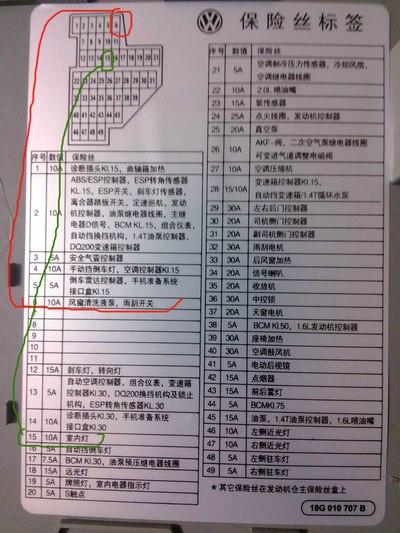 保险丝标签
序号 数值 保险丝
1 10A 诊断插头Kl.15，曲轴箱加热
2 10A ABS/ESP控制器，ESP转角传感器
KL.15，ESP开关，刹车灯传感器，
离合器踏板开关，定速巡航，发动
机控制器，油泵继电器线圈，主继
电器D信号，BCM KL.15，组合仪表，
自动挡换挡机构，1.4T油泵控制器，
DQ200变速箱控制器
3 5A 安全气囊控制器
4 10A 手动挡倒车灯，空调控制器KL15
5 5A 倒车雷达控制器，手机准备系统
接口盒Kl.15
10A 风窗清洗液泵，雨刮开关
8
9
10
11
12 15A 刹车灯，转向灯
13 5A 自动空调控制器，组合仪表，变速箱
控制器Kl.30，DQ200换挡机构及锁止
机构，ESP转角传感器KL.30
14 10A 诊断插头Kl.30，手机准备系统
接口盒Kl.30
15 10A 室内灯
16 5A 自动挡倒车灯
17 7.5A BCM Kl.30，油泵预压继电器线圈
18 15A 远光灯
19 5A 牌照灯，室内电器指示灯
20 5A S触点
序号 数值 保险丝
21 5A 空调制冷压力传感器，冷却风扇，
空调继电器线圈
22 10A 2.0L 喷油嘴
23 15A 氧传感器
24 25A 点火线圈，发动机控制器
25 20A 真空泵
26 10A AKF-阀，二次空气泵继电器线圈
可变进气道调整电磁阀
27 10A 空调压缩机
28 15/10A 变速箱控制器Kl.15，
自动挡变速箱/1.4T循环水泵
29 30A 左右后门控制器
30 20A 司机侧门控制器
31 20A 副司机侧门控制器
32 30A 雨刮电机
33 30A 后风窗加热
34 20A 信号喇叭
35 20A 收放机
36 30A 中控锁
37 20A 天窗电机
38 5A BCM KL50，1.6L发动机控制器
39 30A 座椅加热
40 30A 空调鼓风机
41 5A 电动后视镜
42 15A 点烟器
43 15A 前后雾灯
44 5A BCMKl.75
45 15A 油泵，1.4T油泵控制器，1.6L喷油嘴
46 10A 左侧近光灯
47 10A 右侧近光灯
48 5A 左侧驻车灯
49 5A 右侧驻车灯
★其它保险丝在发动机仓主保险丝盒上
18G 010 707 B